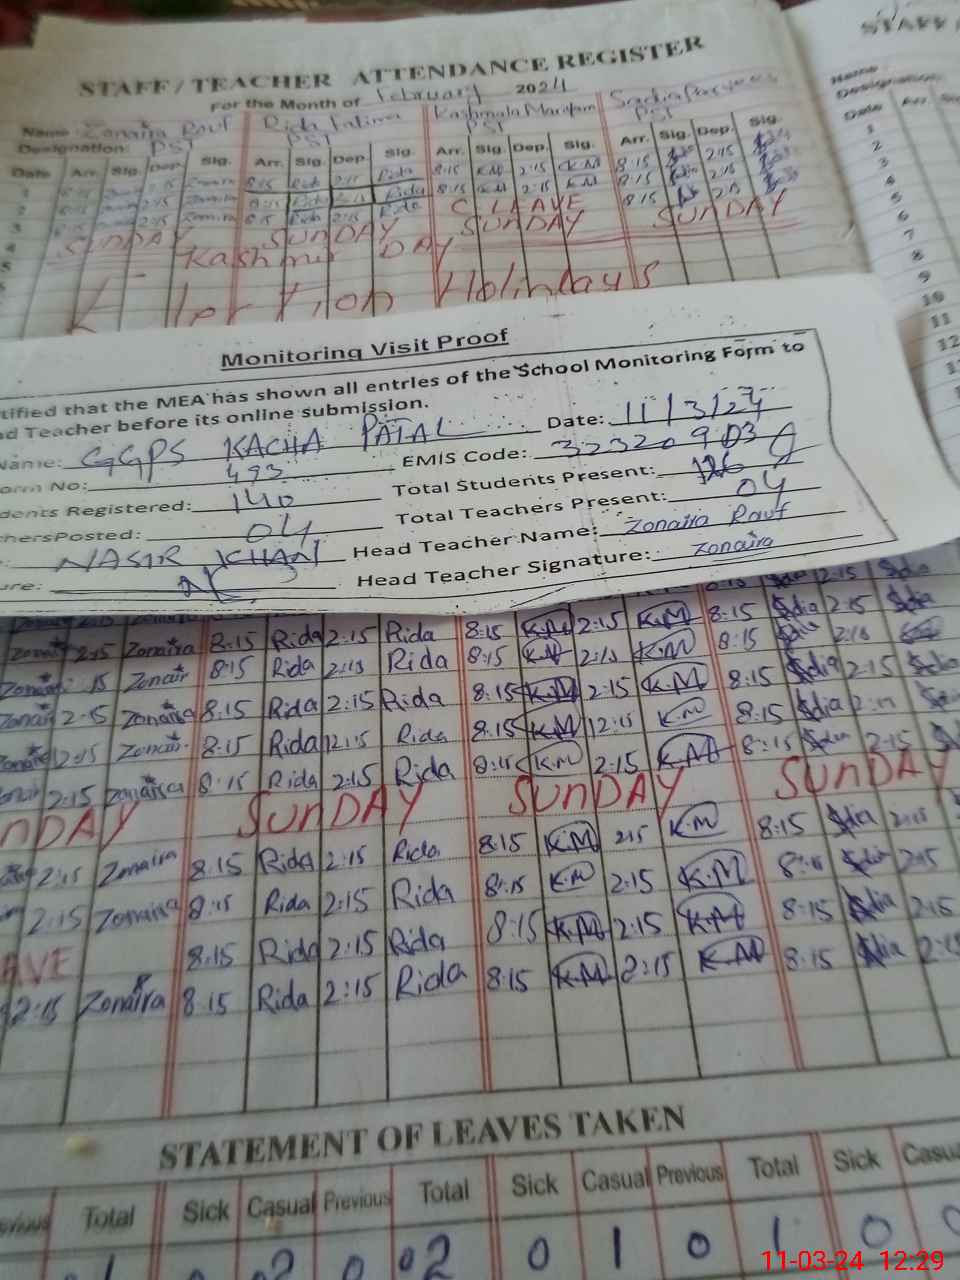 STAFF /
STAFF / TEACHER ATTENDANCE REGISTER
For the Month of February 2024
Name: Zonaira Rauf Rida Fatima Kashmala Maryam Sadia Parveen
Designation: PST PST PST PST
Date Arr. Sig. Dep. Sig. Arr. Sig. Dep. Sig. Arr. Sig. Dep. Sig. Arr. Sig. Dep. Sig.
1 2:15 Zonaira 8:15 Rida 2:15 Rida 8:15 K.M 2:15 K.M 8:15 2:15
2 2:15 Zonaira 8:15 Rida 2:15 Rida 8:15 K.M 2:15 K.M 8:15 2:15
3 2:15 Zonaira 8:15 Rida 2:15 Rida C. LEAVE 8:15 2:15
4 SUNDAY SUNDAY SUNDAY SUNDAY
5 Kashmir DAY
Holindays
Name:
Designation:
Date Arr.
1
2
3
4
5
6
7
8
9
10
11
12
13
Monitoring Visit Proof
tified that the MEA has shown all entries of the School Monitoring Form to
d Teacher before its online submission.
Name: GGPS KACHA PATAL Date: 11/3/24
orm No: 493 EMIS Code: 32320903
dents Registered: 140 Total Students Present: 126
hersPosted: 04 Total Teachers Present: 04
NASIR KHAN Head Teacher Name: Zonaira Rauf
ure: Head Teacher Signature: Zonaira
2:15 Sadia
Zonaira 2:15 Zonaira 8:15 Rida 2:15 Rida 8:15 K.M 2:15 K.M 8:15 Sdia 2:15 Sdia
Zonai 15 Zonair 8:15 Rida 2:15 Rida 8:15 K.M 2:15 K.M 8:15 2:15
Zonair 2:15 Zonaira 8:15 Rida 2:15 Rida 8:15 K.M 2:15 K.M 8:15 Sdia 2:15 Sdia
Zonaira 2:15 Zonair 8:15 Rida 12:15 Rida 8:15 K.M 12:15 K.M 8:15 Sdia
onair 2:15 Zonaira 8:15 Rida 2:15 Rida 8:15 K.M 2:15 K.M 8:15 Sdia 2:15
NDAY SUNDAY SUNDAY SUNDAY
2:15 Zonaira 8:15 Rida 2:15 Rida 8:15 K.M 2:15 K.M 8:15 Sdia 2:15
2:15 Zonaira 8:15 Rida 2:15 Rida 8:15 K.M 2:15 K.M 8:15 Sdia 2:15
AVE 8:15 Rida 2:15 Rida 8:15 K.M 2:15 K.M 8:15 Sdia 2:15
2:15 Zonaira 8:15 Rida 2:15 Rida 8:15 K.M 2:15 K.M 8:15 Sdia 2:15
STATEMENT OF LEAVES TAKEN
evious Total Sick Casual Previous Total Sick Casual Previous Total Sick Casua
1 02 0 02 0 1 0 1 0 0
11-03-24 12:29